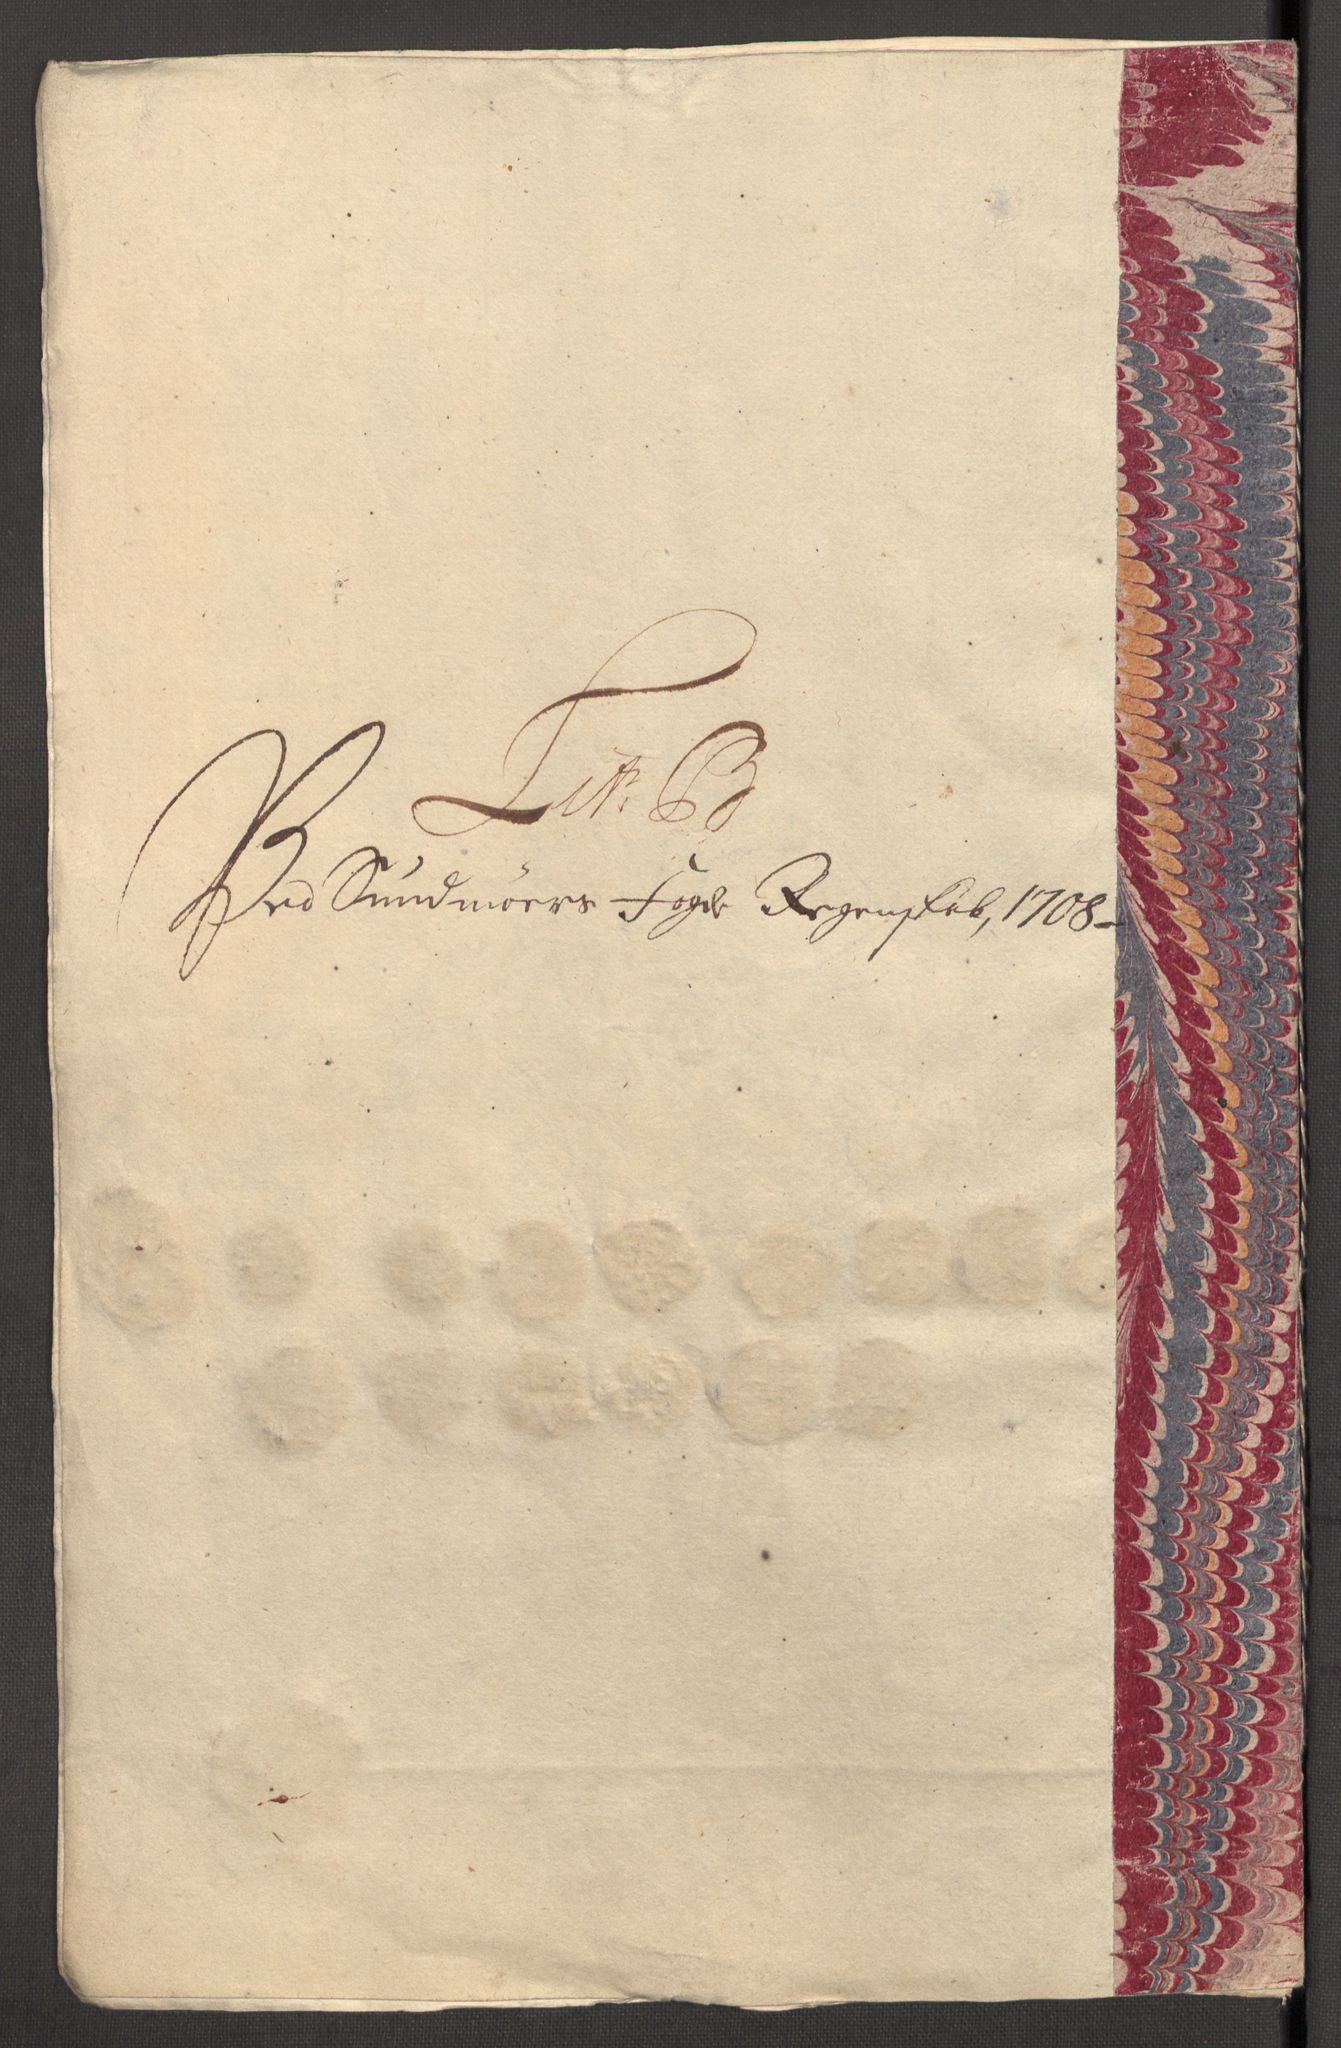 Lit. B
Ved Sundmöers Fogde Regenskab, 1708